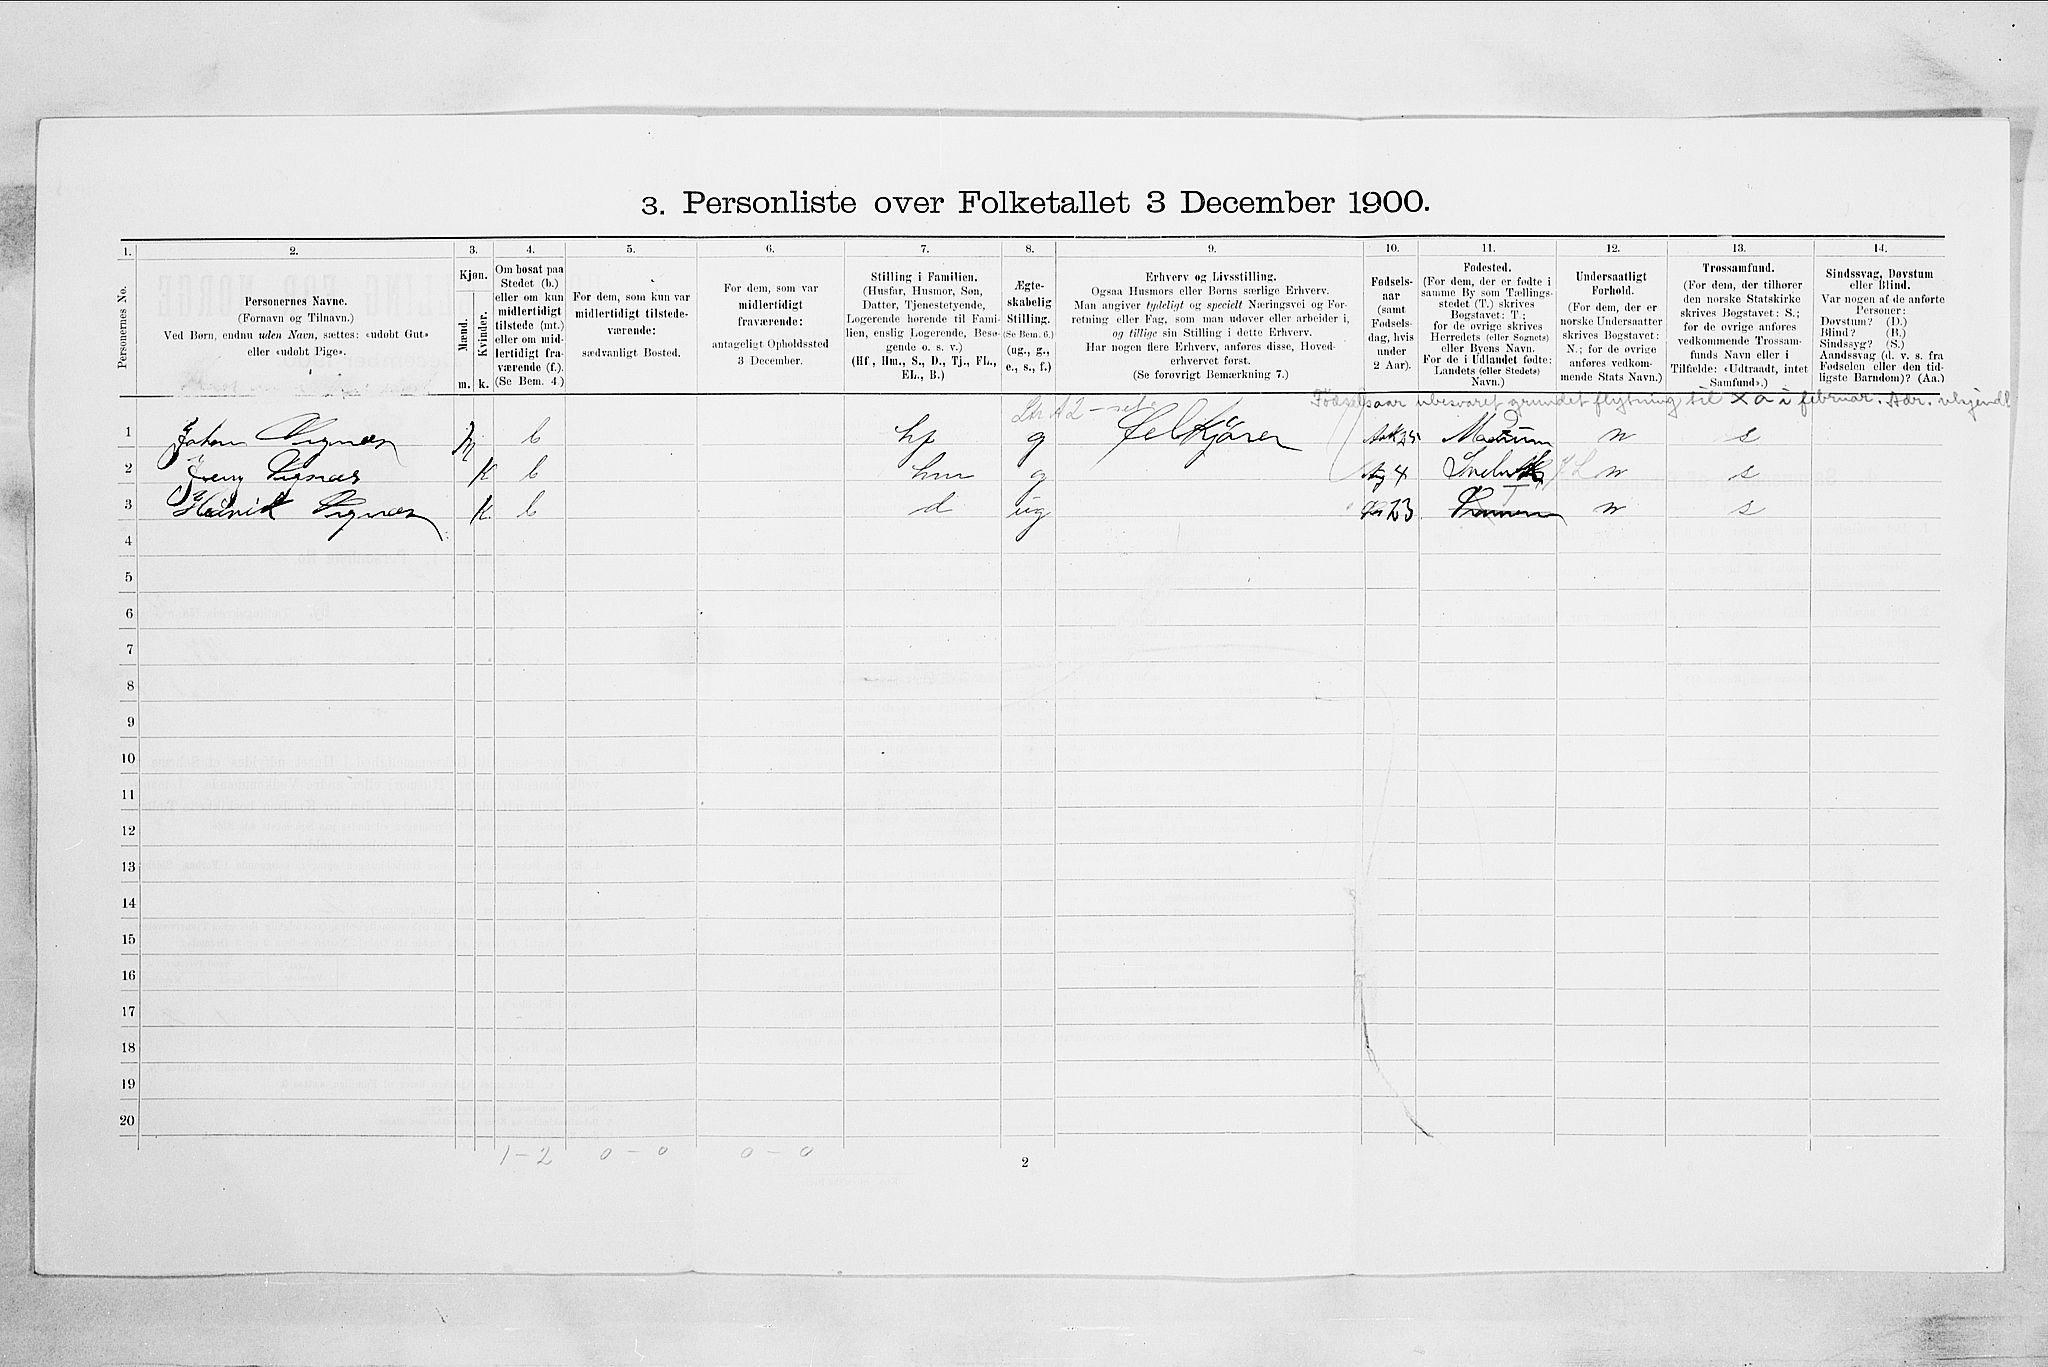 3. Personliste over Folketallet 3 December 1900.
1. 2. 3. 4. 5. 6. 7. 8. 9. 10. 11. 12. 13. 14.
Personernes No.
Personernes Navne.
(Fornavn og Tilnavn.)
Ved Børn, endnu uden Navn, sættes: «udøbt Gut»
eller «udøbt Pige».
Kjøn.
Mænd.
Kvinder.
m. k.
Om bosat paa
Stedet (b.)
eller om kun
midlertidigt
tilstede (mt.)
eller om mid-
lertidigt fra-
værende (f.).
(Se Bem. 4.)
For dem, som kun var
midlertidigt tilstede-
værende:
sædvanligt Bosted.
For dem, som var
midlertidigt
fraværende:
antageligt Opholdssted
3 December.
Stilling i Familien.
(Husfar, Husmor, Søn,
Datter, Tjenestetyende,
Logerende hørende til Fami-
lien, enslig Logerende, Besø-
gende o. s. v.)
(Hf., Hm., S., D., Tj., FL.,
EL., B.)
Ægte-
skabelig
Stilling.
(Se Bem. 6.)
(ug., g.,
e., s., f.)
Erhverv og Livsstilling.
Ogsaa Husmors eller Børns særlige Erhverv.
Man angiver tydeligt og specielt Næringsvei og For-
retning eller Fag, som man udøver eller arbeider i,
og tillige sin Stilling i dette Erhverv.
Har nogen flere Erhverv, anføres disse, Hoved-
erhvervet først.
(Se forøvrigt Bemærkning 7.)
Fødsels-
aar
(samt
Fødsels-
dag, hvis
under
2 Aar).
Fødested.
(For dem, der er fødte i
samme By som Tællings-
stedet (T.) skrives
Bogstavet: T.;
for de øvrige skrives
Herredets (eller Sognets)
eller Byens Navn.
For de i Udlandet fødte:
Landets (eller Stedets)
Navn.)
Undersaatligt
Forhold.
(For dem, der er
norske Undersaatter
skrives Bogstavet:
N.; for de øvrige
anføres vedkom-
mende Stats Navn.)
Trossamfund.
(For dem, der tilhører
den norske Statskirke
skrives Bogstavet: S.;
for de øvrige anføres
vedkommende Trossam-
funds Navn eller i
Tilfælde: «Udtraadt, intet
Samfund».)
Sindssvag, Døvstum
eller Blind.
Var nogen af de anførte
Personer:
Døvstum? (D.)
Blind? (B.)
Sindssyg? (S.)
Aandssvag (d. v. s. fra
Fødselen eller den tid-
ligste Barndom)? (Aa.)
Fødselsaar ubesvaret grundet flytning til Xa i februar. Adr. ukjendt
1 Johan m b hf g n s
2 k b hm g 4 n s
3 k b d ug 23 n s
4
5
6
7
8
9
10
11
12
13
14
15
16
17
18
19
20
1 – 2 0 – 0 0 – 0
2